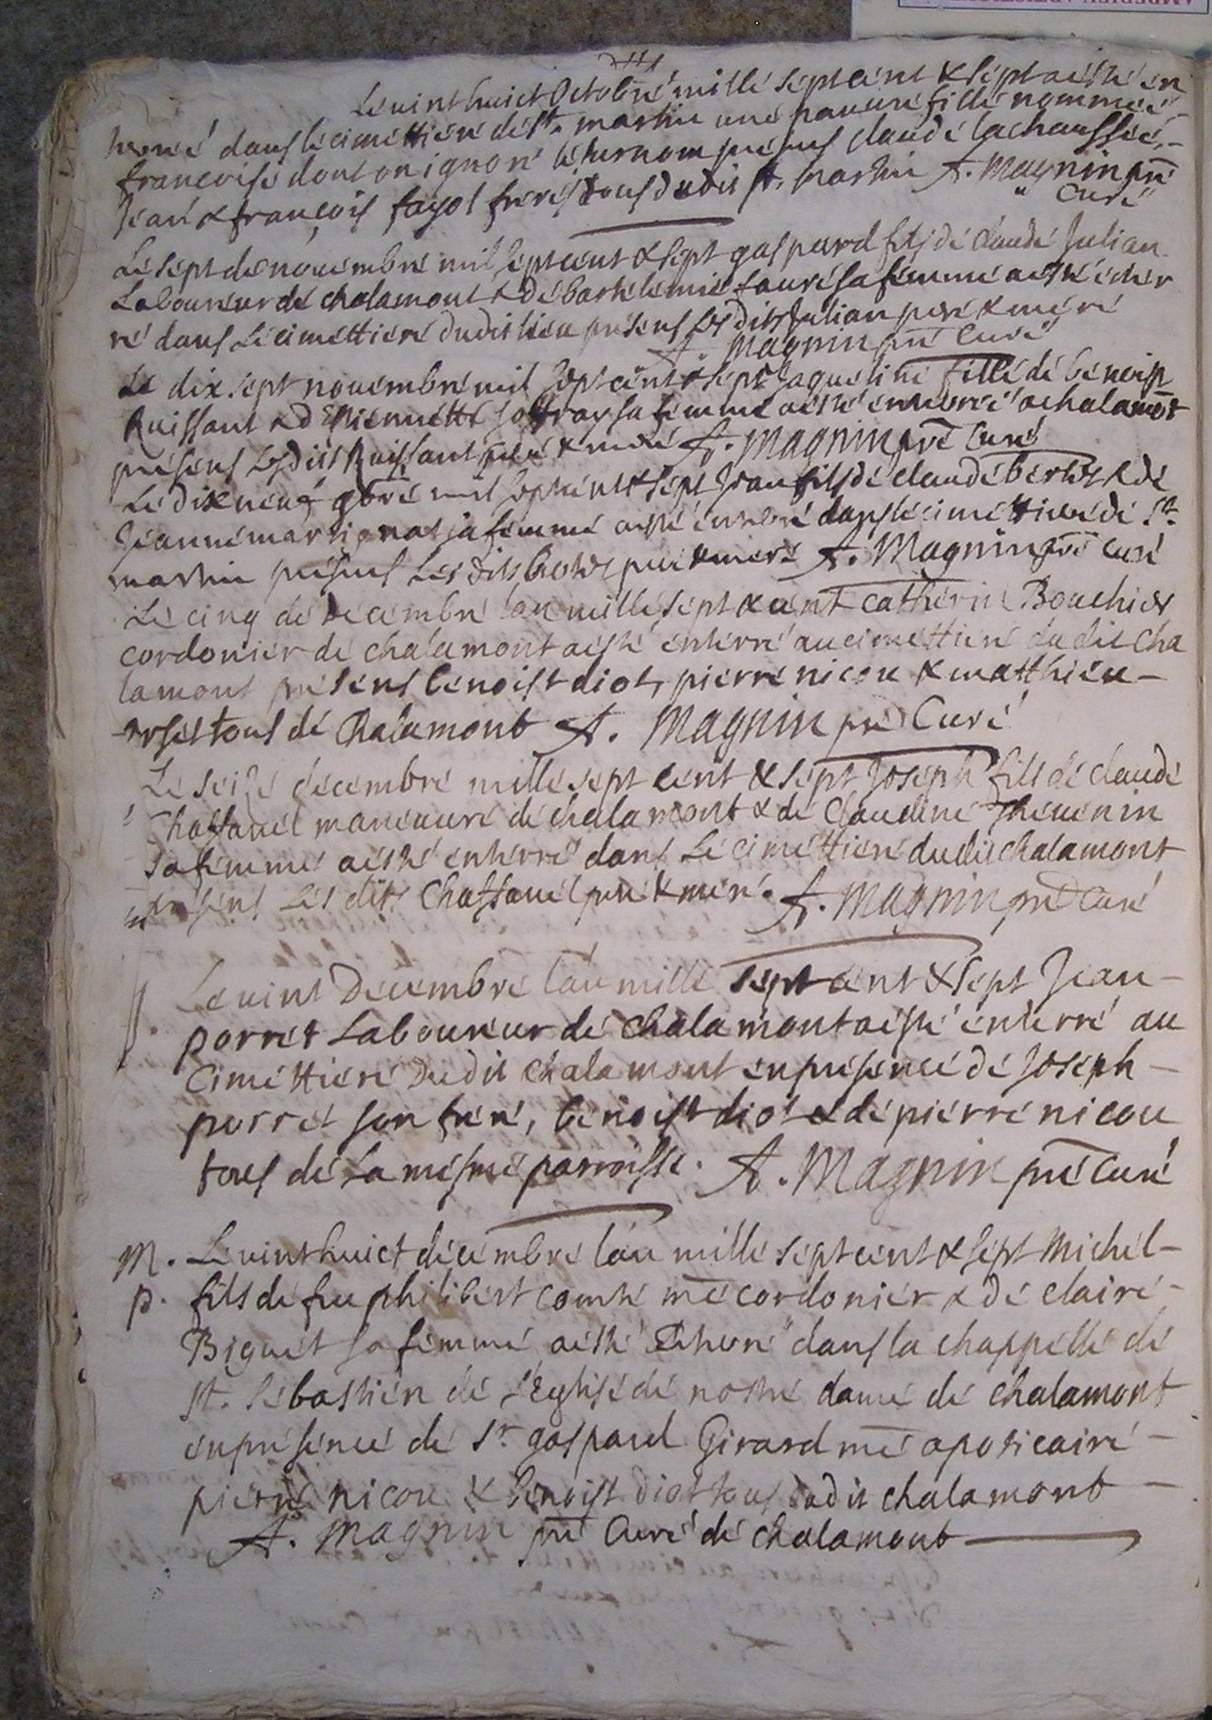 Le vint huict Octobre mille sept cent & sept a esté en
terreé dans le cimettiere de St. martin une pauvre fille nommeé
francoise dont on ignore le surnom presens claude lachausseé,
Jean & françois fayol freres tous dudit st. martin A. Magnin pre
Curé
Le sept de novembre mil sept cent & sept gaspard fils de claude Julian
Laboureur de chalamont & de barthelemie faure sa femme a esté enter
ré dans le cimettiere dudit lieu presens les dits Julian pere & mere
A. Magnin pre Curé
Le dix sept novembre mil sept cent & sept Jaqueline fille de benoist
Ruissant & d'Estiennette sa femme a esté enterreé a chalamont
presens les dits Ruissant pere & mere A. Magnin pre Curé
Le dix neuf 9bre mil sept cent & sept Jean fils de claude bertet & de
Jeanne martignat sa femme a esté enterré dans le cimettiere de St.
martin presens les dits pere & mere A. Magnin pre Curé
Le cinq de Decembre l'an mille sept & cent catherin Bouchier
cordonier de chalamont a esté enterré au cimettiere du dit cha
lamont presens benoist diot, pierre nicou & matthieu
tous de Chalamont A. Magnin pre Curé
Le seize decembre mille sept cent & sept Joseph fils de claude
Chassanel maneuvre de chalamont & de Claudine Thevenin
sa femme a esté enterré dans le cimettiere dudit chalamont
presens les dits Chassanel pere & mere. A. Magnin pre Curé
Le vint Decembre l'an mille sept cent & sept Jean
porret Laboureur de chalamont a esté enterré au
Cimettiere Dudit chalamont en presence de Joseph
porret son frere, benoist diot & de pierre nicou
tous de la mesme parroisse. A. Magnin pre Curé
M. Le vint huict decembre l'an mille sept cent & sept Michel
p. fils de feu philibert comte me cordonier & de claire
Biguet sa femme a esté Enterré dans la chappelle de
St. Sebastien de l'Eglise de nostre dame de chalamont
en presence de Sr. gaspard Girard me apoticaire
pierre nicou & benoist diot tous dudit chalamont
A. Magnin pre Curé de chalamont